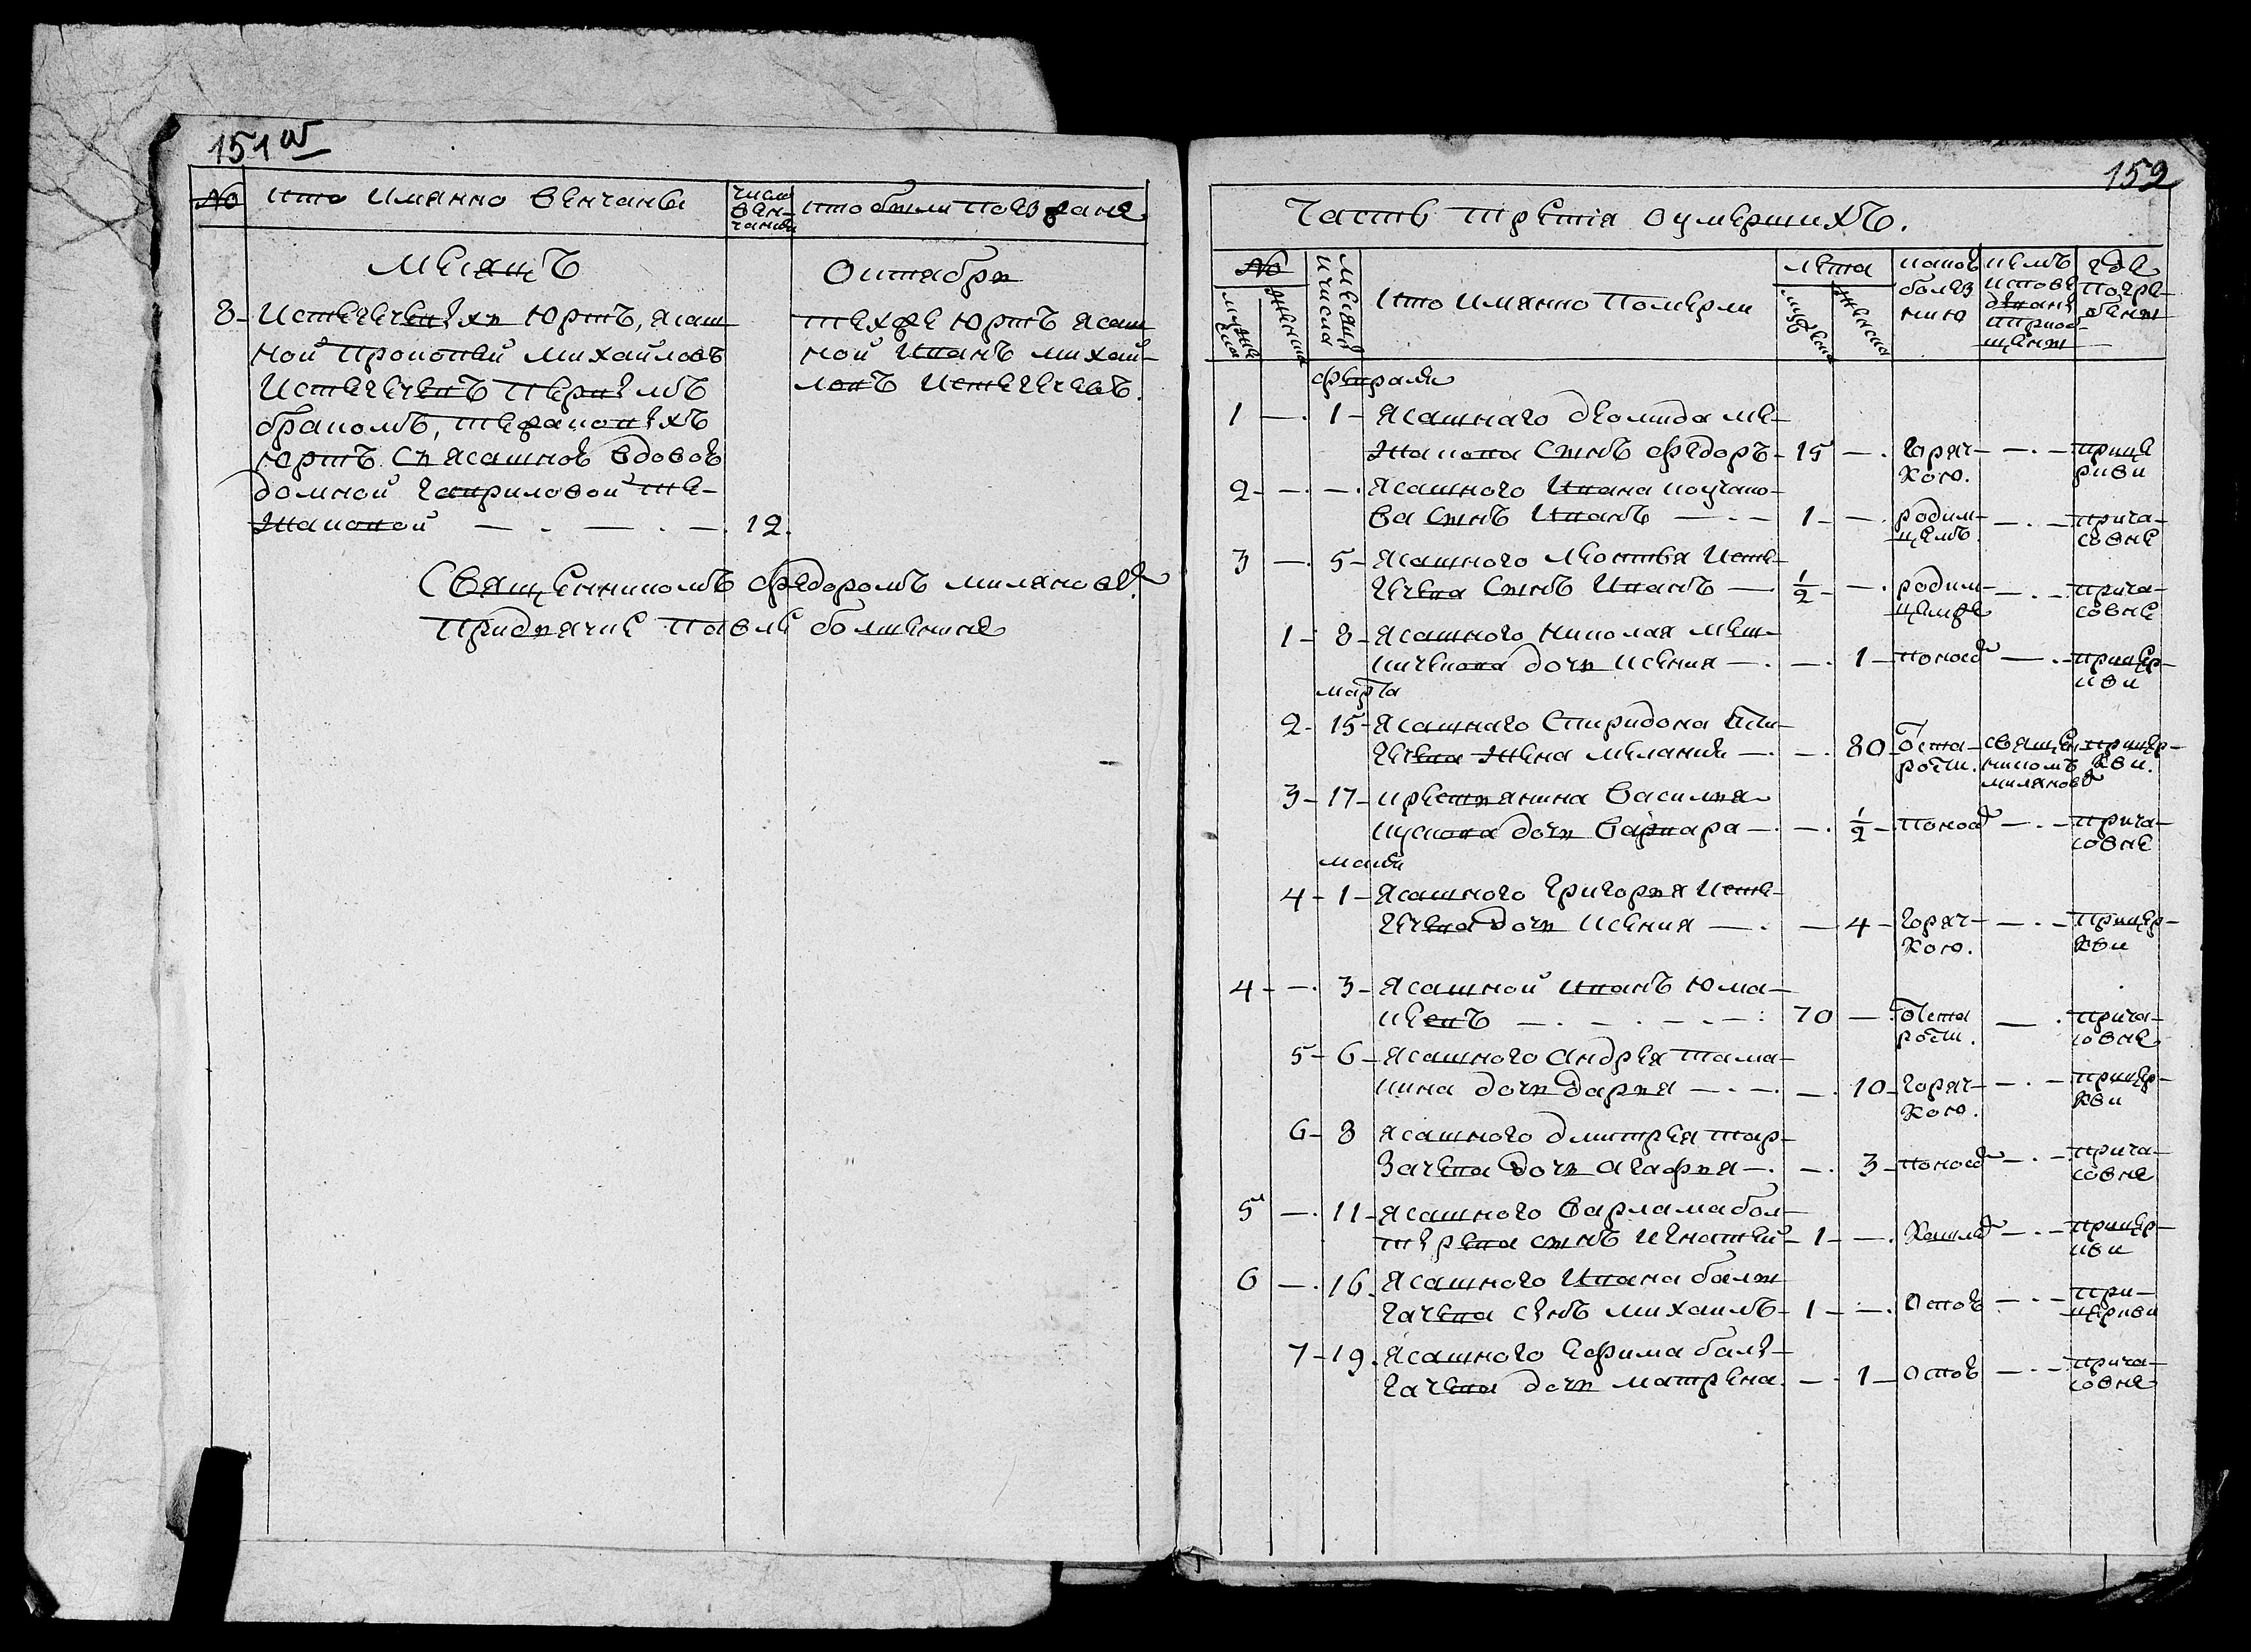 151 об
№ Кто имянно венчаны число венчания кто были поезжане
Месяцъ Октября
8 Истегечевыхъ юртъ, ясаш-
ной Прокопей Михайловъ
Истегечевъ первымъ
бракомъ,
юртъ съ ясашной вдовой
Домной Гавриловой
12.
техже юртъ ясаш-
ной Иванъ Михай-
ловъ Истегечевъ.
Священникомъ Федоромъ Миляновы
при дьячке Павле
152
Часть третiя о умершихъ.
№ мужеска женска
месяцъ и число
Кто имянно померли
лета мужеска женска
какою болезнию
кемъ исповеданы и приобщены
где погребены
февраля
1 — 1 — ясашнаго Деомида
сынъ Федоръ — 15 — горяч- — при це
кою. ркви
2 — — ясашного Ивана
ва сынъ Иванъ — 1 — родим- — при ча-
цемъ совне
3 — 5 — ясашного Леонтья Исте-
гечева сынъ Иванъ — 1/2 — родим- — при ча-
цемже совне
1 — 8 — ясашного Николая
дочь Ксения — 1 — поносо — при цер-
кви
марта
2 — 15 — ясашнаго Спиридона
гечева жена Мелания — 80 — от ста- священ при цер-
рости. никомъ кви.
миляновы
3 — 17 — крестьянина Василья
дочь Варвара — 1/2 — поносо — при ча-
совне
маия
4 — 1 — ясашного Григорья Исте-
гечева дочь Ксения — 4 — горяч- — при цер-
кою. кви
4 — 3 — ясашной Иванъ Юма-
шевъ — 70 — от ста — при ча-
рости. совне
5 — 6 — ясашного Андрея
дочь Дарья — 10 — горяч- — при цер-
кою. кви
6 — 8 ясашного Дмитрея Тар-
дочь Агафья — 3 — поносо — при ча-
совне
5 — 11 — ясашного Варлама
сынъ Игнатей — 1 — кашле — при цер-
кви
6 — 16 ясашного Ивана Балы
гачева сынъ Михаилъ — 1 — оспой — при-
церкви
7 — 19 ясашного Ефима Балы-
гачева дочь Матрена — 1 — оспой — при ча-
совне